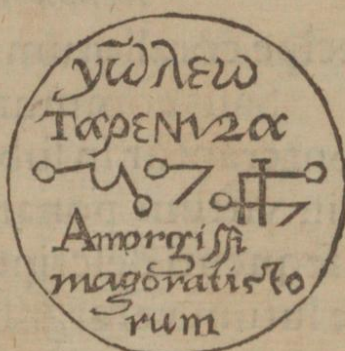 γω̃λεω
ΤαρεΝι2α
Amorgissi
magoratісто
rum